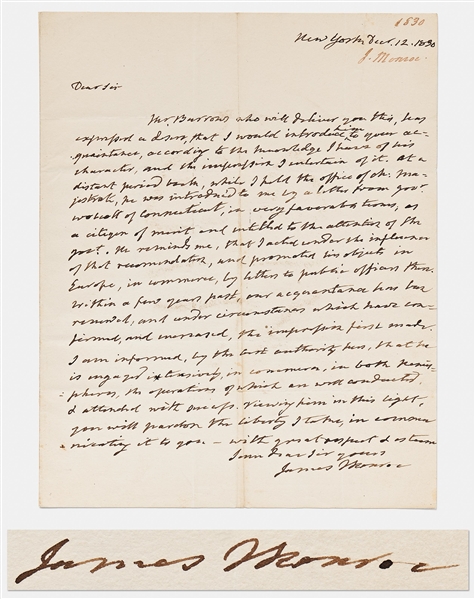 1830
New York Decr. 12. 1830
J. Monroe.
Dear Sir
Mr. Burrows who will deliver you this, has
expressed a desire, that I would introduce him to your ac-
quaintance, according to the knowledge I have of his
character, and the impression I entertain of it. At a
distant period back, while I held the office of ch: ma-
jistrate, he was introduced to me by a letter from govr.
Wolcott of Connecticut, in very favorable terms, as
a citizen of merit and entitled to the attention of the
govt. He reminds me, that I acted under the influence
of that recomendation, and promoted his objects in
Europe, in commerce, by letters to public officers there.
Within a few years past, our acquaintance has been
renewed, and under circumstances which have con-
firmed, and increased, the impression first made.
I am informed, by the best authority here, that he
is engaged extensively, in commerce, in both hemis-
pheres, the operations of which are well conducted,
& attended with success. Viewing him in this light,
you will pardon the liberty I take, in commu-
nicating it to you – with great respect & esteem
I am dear Sir yours
James Monroe
James Monroe